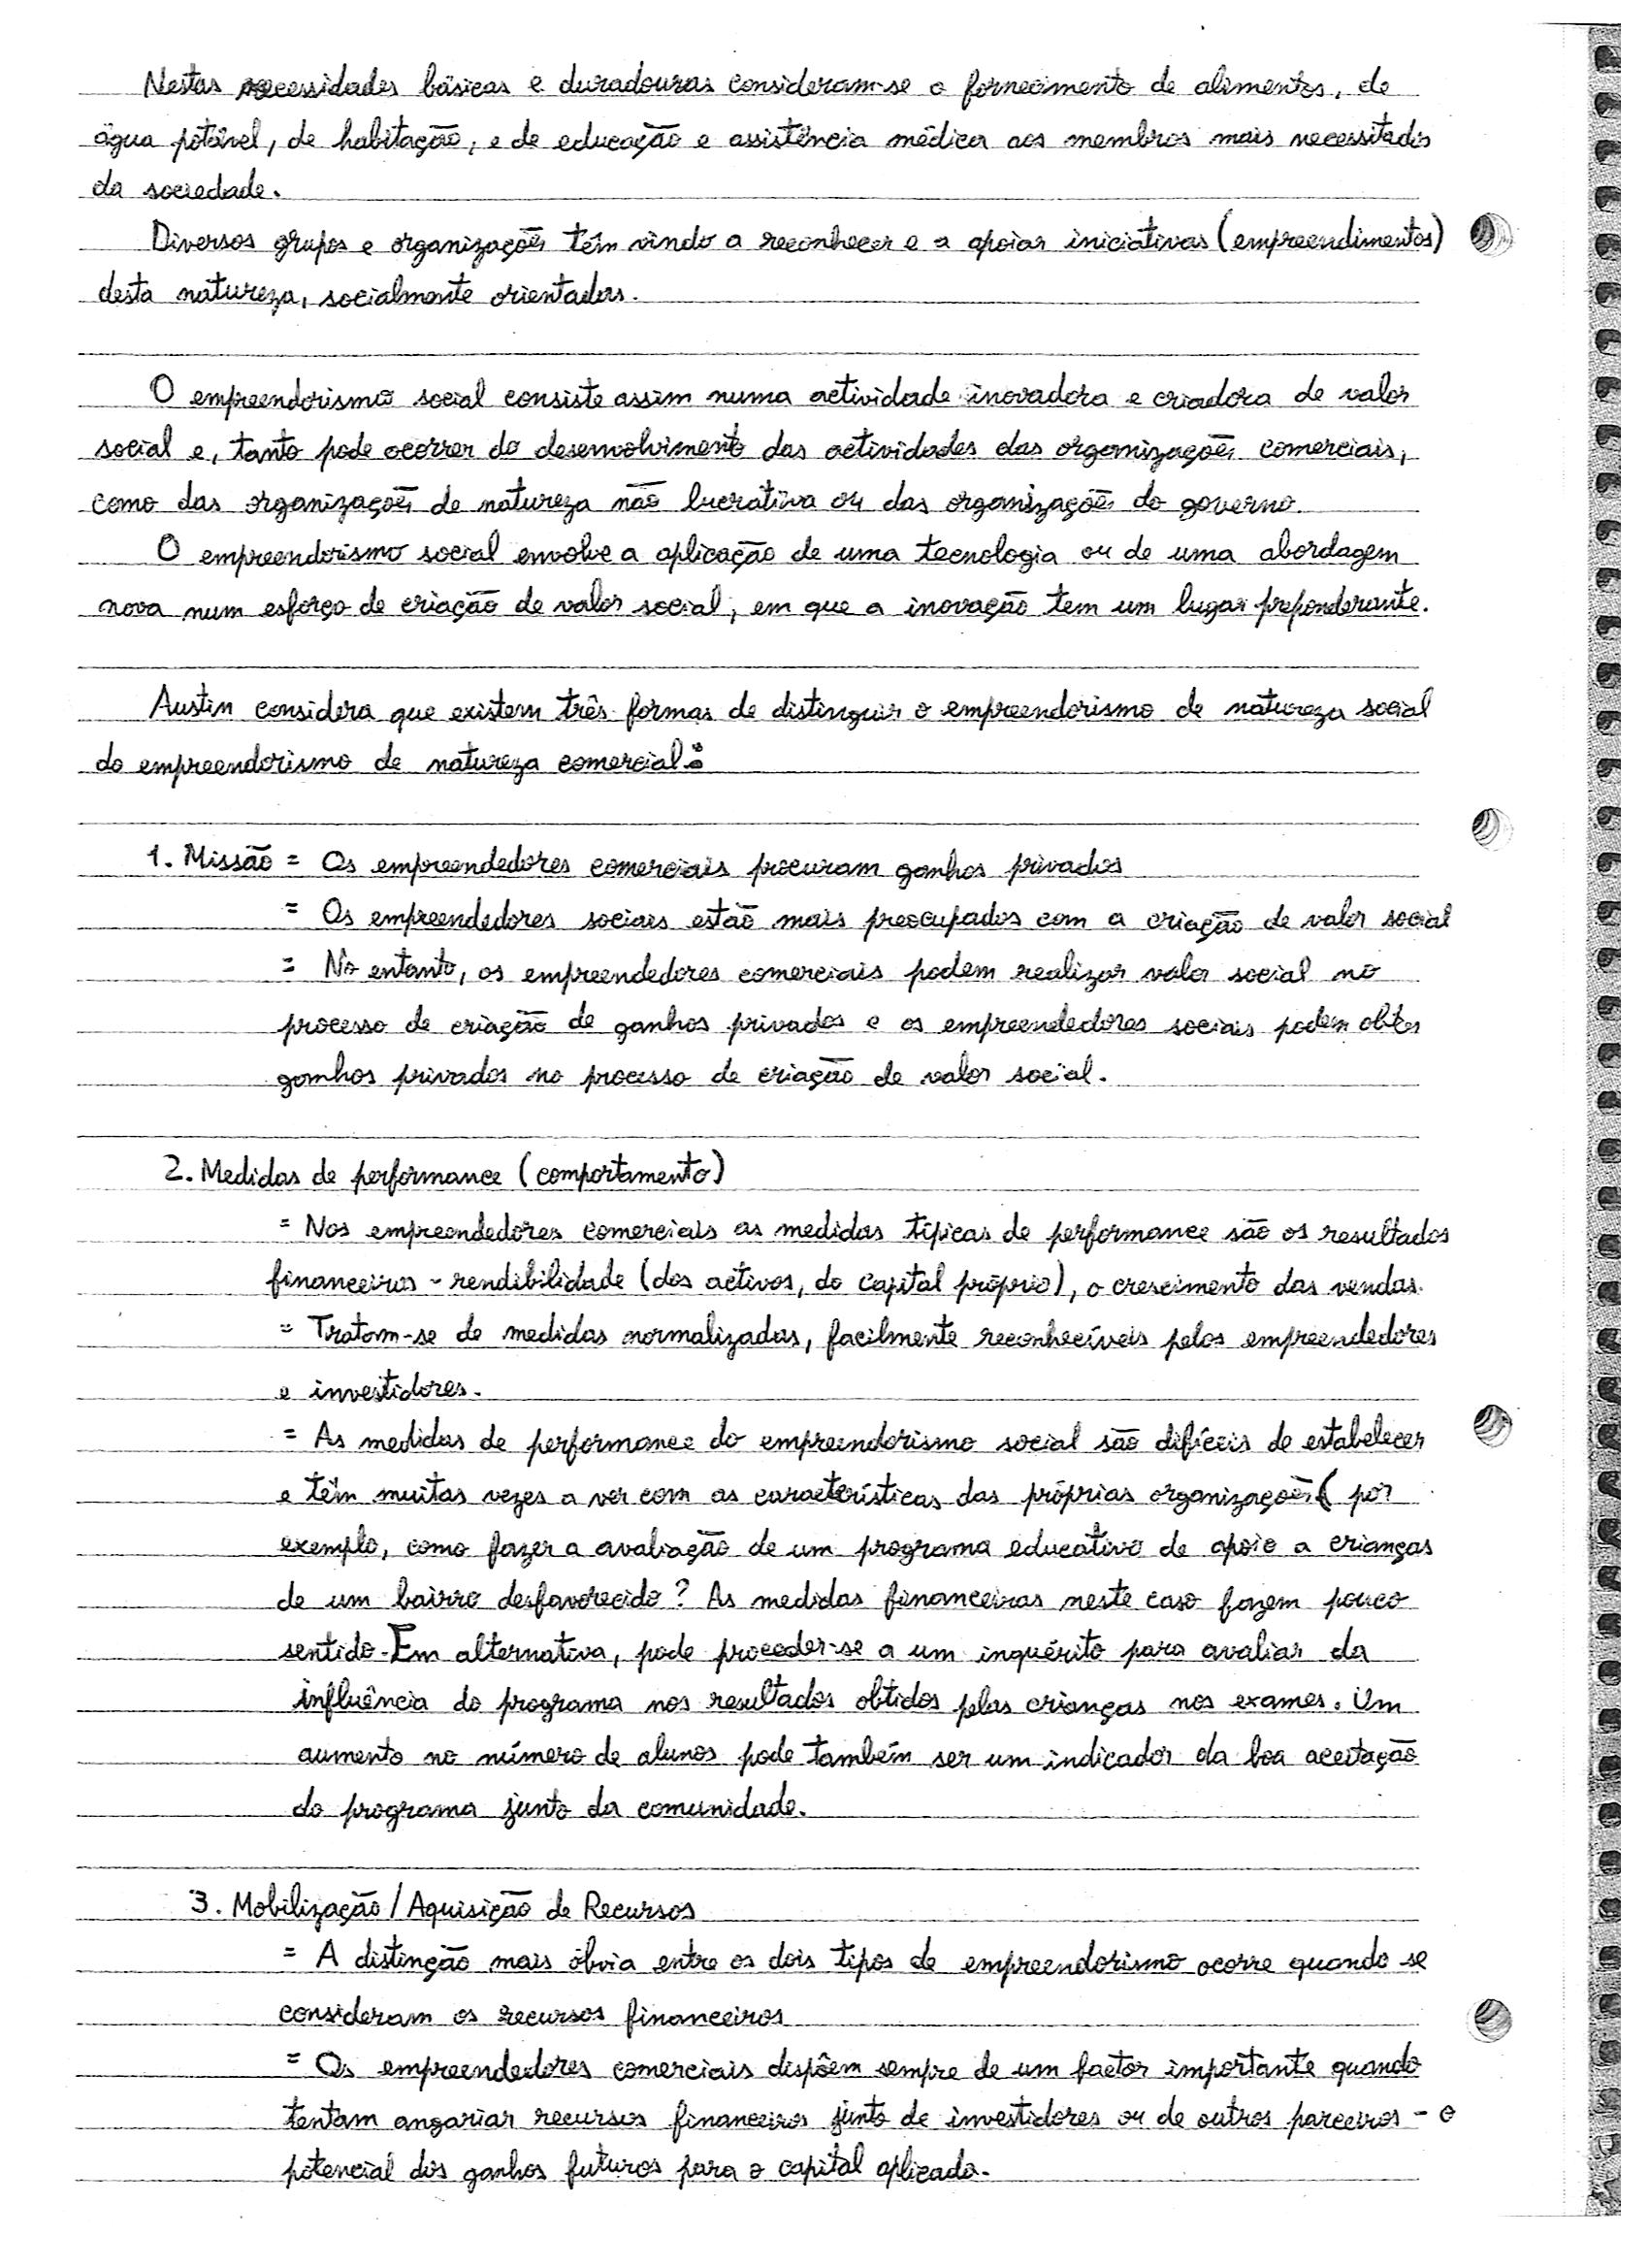 Nestas necessidades básicas e duradouras consideram-se o fornecimento de alimentos, de
água potável, de habitação, e de educação e assistência médica aos membros mais necessitados
da sociedade.
Diversos grupos e organizações têm vindo a reconhecer e a apoiar iniciativas (empreendimentos)
desta natureza, socialmente orientadas.
O empreendorismo social consiste assim numa actividade inovadora e criadora de valor
social e, tanto pode ocorrer do desenvolvimento das actividades das organizações comerciais,
como das organizações de natureza não lucrativa ou das organizações do governo.
O empreendorismo social envolve a aplicação de uma tecnologia ou de uma abordagem
nova num esforço de criação de valor social, em que a inovação tem um lugar preponderante.
Austin considera que existem três formas de distinguir o empreendorismo de natureza social
do empreendorismo de natureza comercial:
1. Missão = Os empreendedores comerciais procuram ganhos privados
= Os empreendedores sociais estão mais preocupados com a criação de valor social
= No entanto, os empreendedores comerciais podem realizar valor social no
processo de criação de ganhos privados e os empreendedores sociais podem obter
ganhos privados no processo de criação de valor social.
2. Medidas de performance (comportamento)
= Nos empreendedores comerciais as medidas típicas de performance são os resultados
financeiros - rendibilidade (dos activos, do capital próprio), o crescimento das vendas.
= Tratam-se de medidas normalizadas, facilmente reconhecíveis pelos empreendedores
e investidores.
= As medidas de performance do empreendorismo social são difíceis de estabelecer
e têm muitas vezes a ver com as características das próprias organizações ( por
exemplo, como fazer a avaliação de um programa educativo de apoio a crianças
de um bairro desfavorecido? As medidas financeiras neste caso fazem pouco
sentido. Em alternativa, pode proceder-se a um inquérito para avaliar da
influência do programa nos resultados obtidos pelas crianças nos exames. Um
aumento no número de alunos pode também ser um indicador da boa aceitação
do programa junto da comunidade.
3. Mobilização / Aquisição de Recursos
= A distinção mais óbvia entre os dois tipos de empreendorismo ocorre quando se
consideram os recursos financeiros
= Os empreendedores comerciais dispõem sempre de um factor importante quando
tentam angariar recursos financeiros junto de investidores ou de outros parceiros - o
potencial dos ganhos futuros para o capital aplicado.